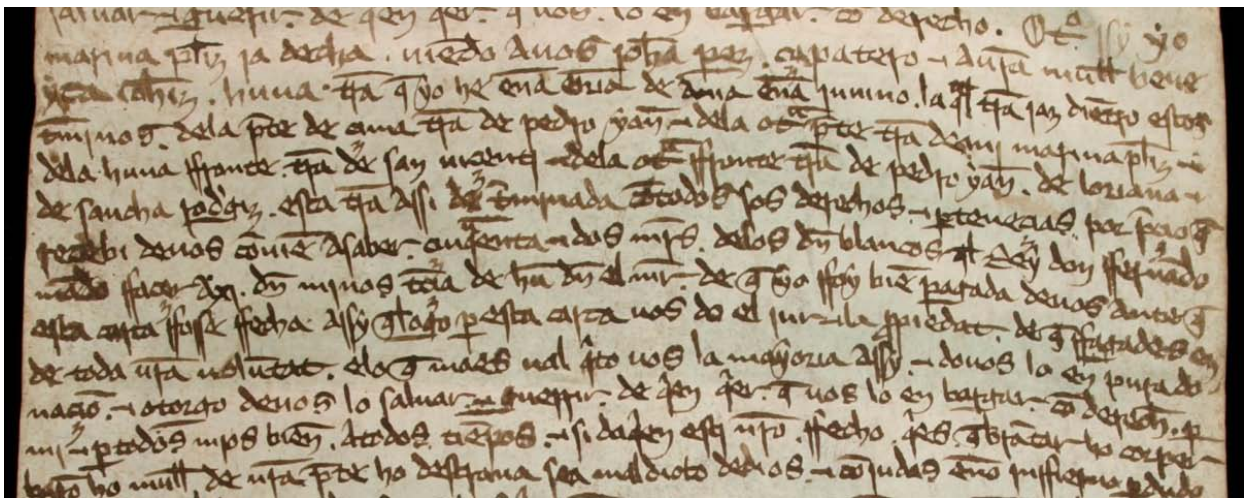 saluar ⁊ guerir. de qen qer. q̃ uos. lo en bargar. cõ derecho. Ot͂. ssy yo
marina ph̃z ia decha. uẽdo auos joh̃a perz. capatero ⁊ aur̃a mull̃
huna. tr̃a q̃ yo he enã de dom̃a enã la ql̃ tr̃a jaz diẽtro estos
tm̃inos. dela p̃te de cima tr̃a de pedro yãn ⁊ dela ot̃a p̃te tr̃a demi marina ph̃z ⁊
dela huna ffronte. tr̃a de san uicenti ⁊ dela ot̃a ffronte tr̃a de pedro yãn. de loriana ⁊
de sancha rodg̃iz. esta tr̃a assi det̃minada cõ todos sos derechos ⁊ p̃tenẽcias. por p̃cio q̃
recebi deuos cõuiẽ asaber. cinq̃enta ⁊ dos mr̃s. delos dñ blancos ql̃ Rey don ffernãdo
mãdo ffacer. dñ minos tc̃ia de hũ dñ el mr̃. de q̃ yo ssoy biẽ pagada deuos ante q̃
esta carta fosse ffecha assy q̃ logo p̃ esta carta uos do el jur ⁊ la p̃piedat. de q̃ ffagades en
de toda ur̃a uolũtat. elo q̃ maes ual q̃to uos la mayoria assy ⁊ douos la en pura do
naciõ. ⁊ otorgo deuos lo saluar ⁊ guerir. de q̃en q̃er. q̃ uos lo en bargar. cõ derech̃. p̃
mi ⁊ p̃ todos mios biẽs. atodos tiẽpos ⁊ si dalgen esti nr̃o. ffecho. q̃brãtar
ho mull̃ de nr̃a p̃te ho destrana sea maldicto dedios ⁊ cõ judas enno inffierno